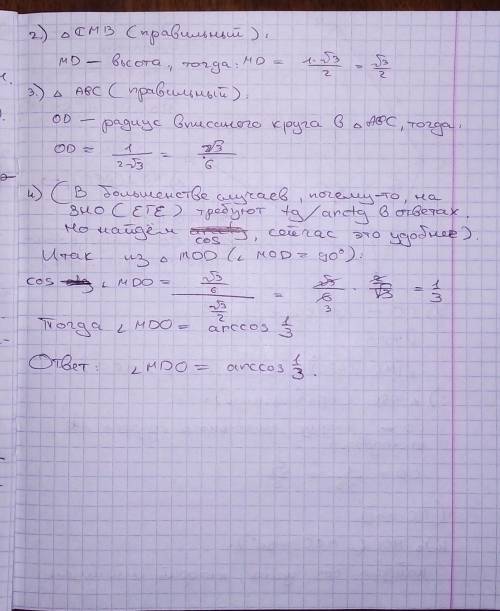 2) △ CMB (правильный):
MD – высота, тогда: MD = 1·√3/2 = √3/2
3.) △ ABC (правильный).
OD – радиус вписаного круга в △ABC, тогда:
OD = 1/2√3 = √3/6
4) (В большенстве случаев, почему-то, на
ЗНО (ЕГЕ) требуют tg/arctg в ответах.
Но найдём cos, сейчас это удобнее)
Итак из △ MOD (∠ MOD = 90°):
cos ∠ MDO = (√3/6)/(√3/2) = √3/6 · 2/√3 = 1/3
Тогда ∠ MDO = arccos 1/3
Ответ: ∠ MDO = arccos 1/3.